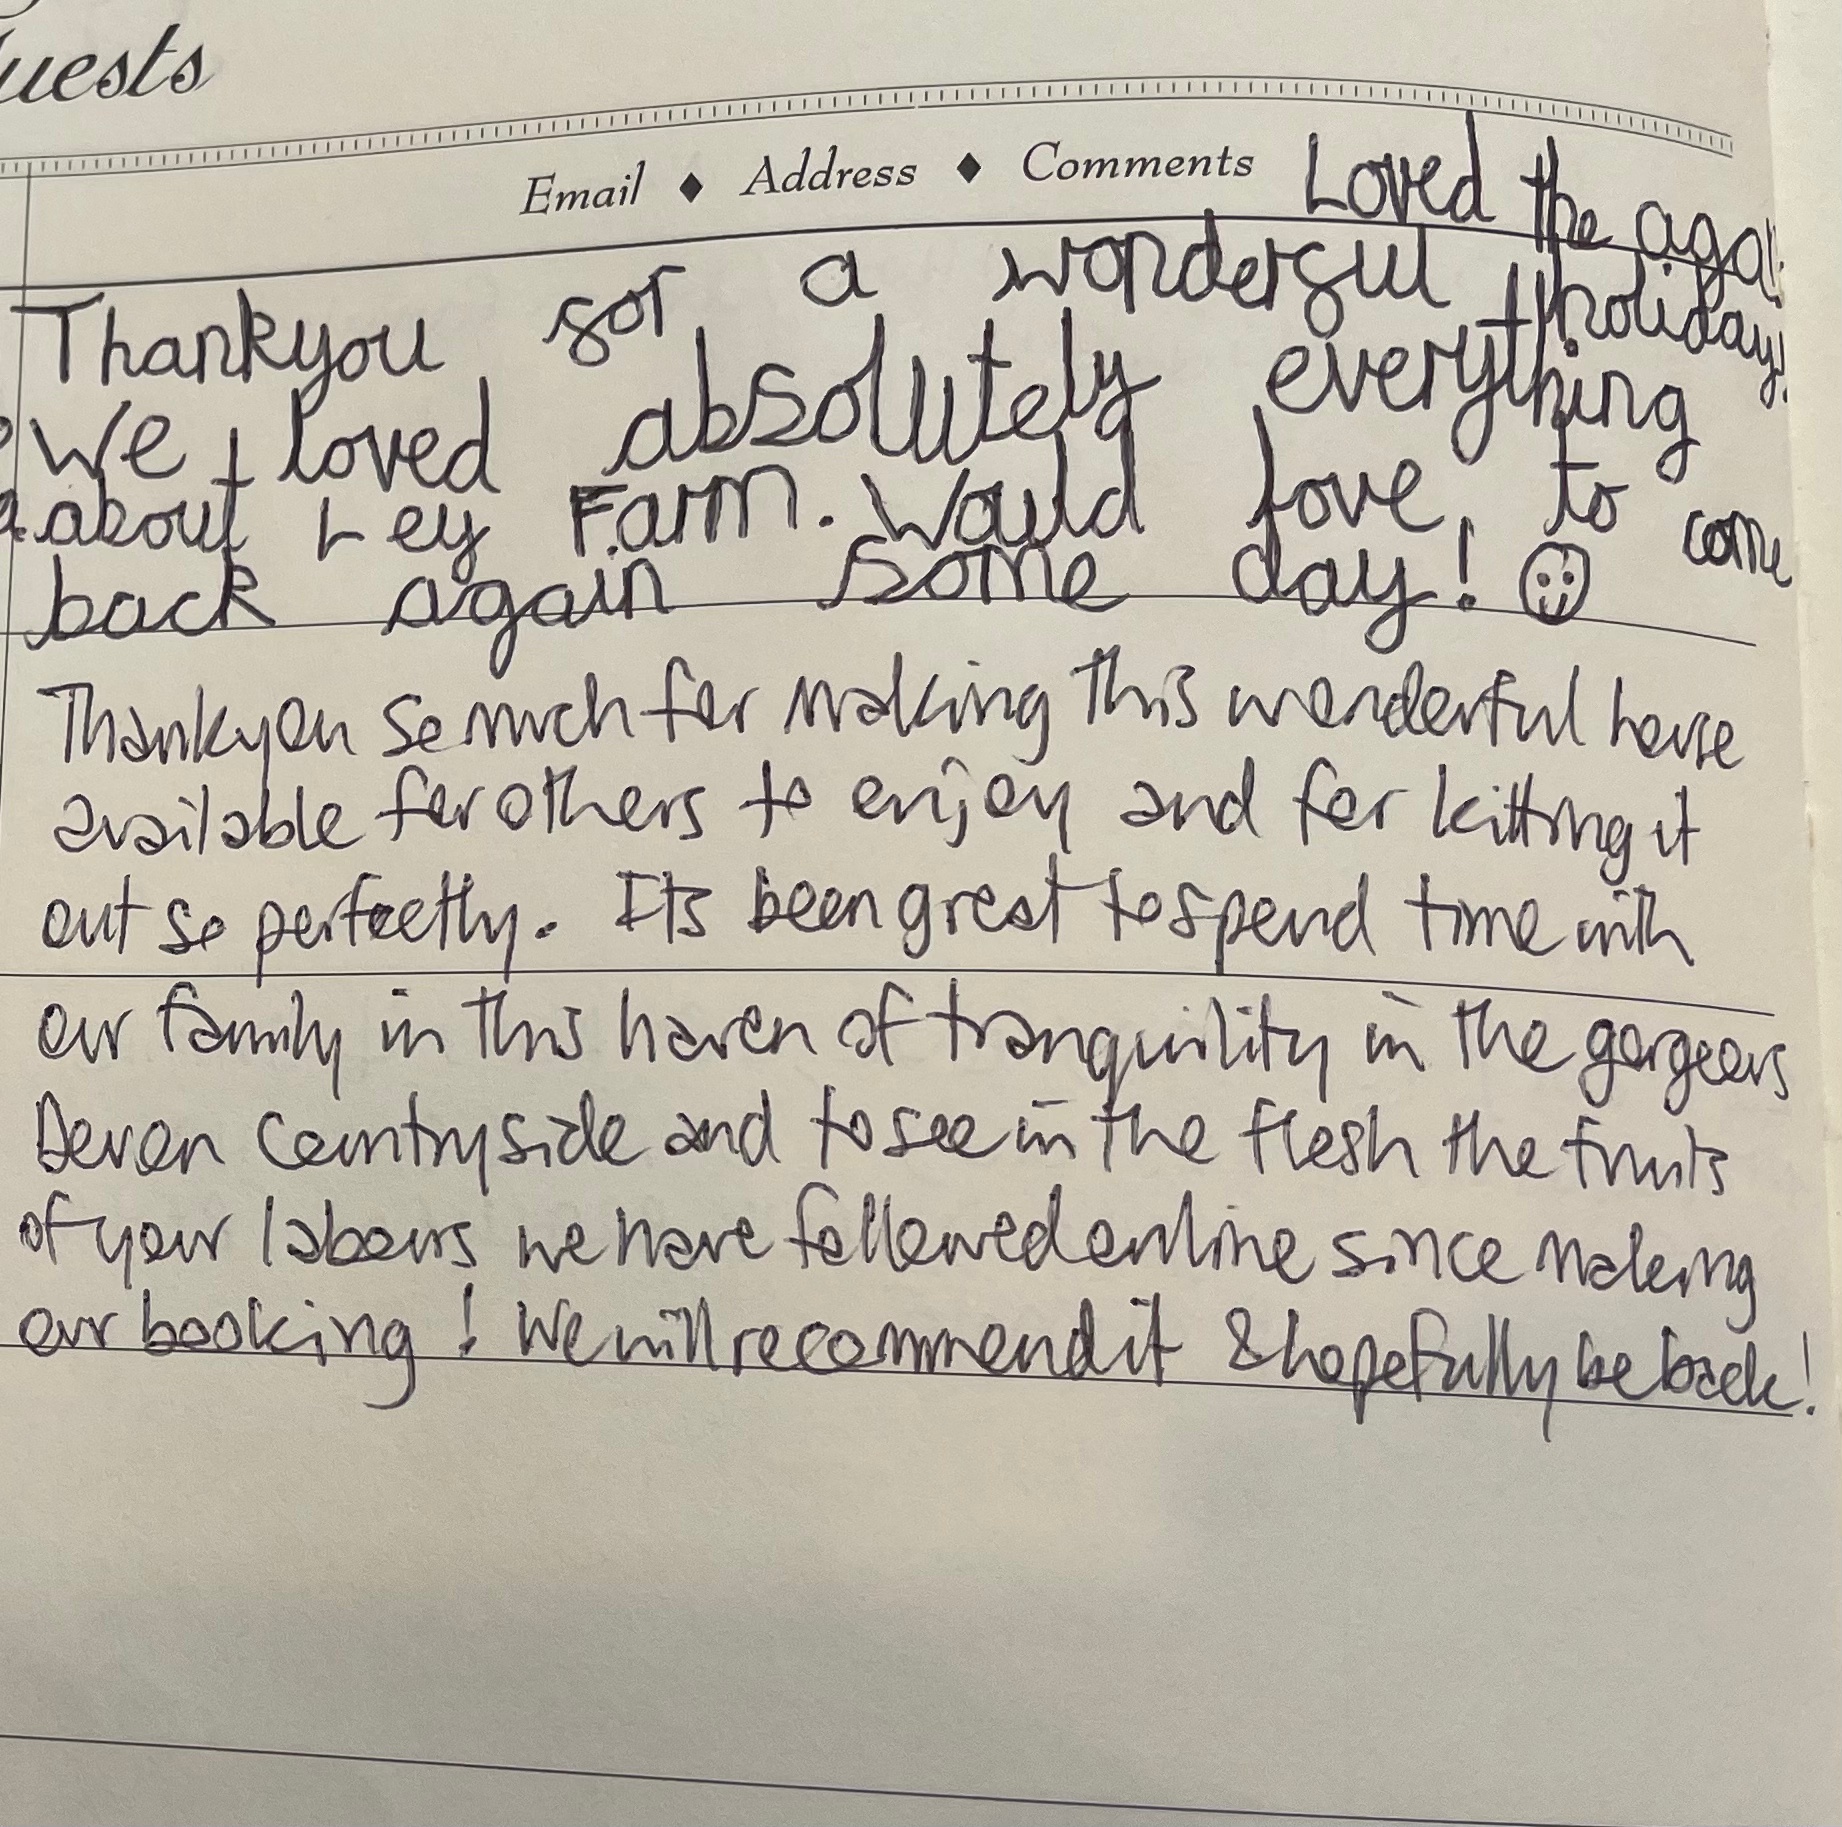 uests
Email ♦ Address ♦ Comments
Loved the aga!
Thankyou for a wonderful holiday!
We loved absolutely everything
about Ley Farm. Would love to come
back again some day! ☺
Thankyou so much for making this wonderful house
available for others to enjoy and for kitting it
out so perfectly. Its been great to spend time with
our family in this haven of tranquility in the gorgeous
Devon Countryside and to see in the flesh the fruits
of your labours we have followed online since making
our booking! We will recommend it & hopefully be back!